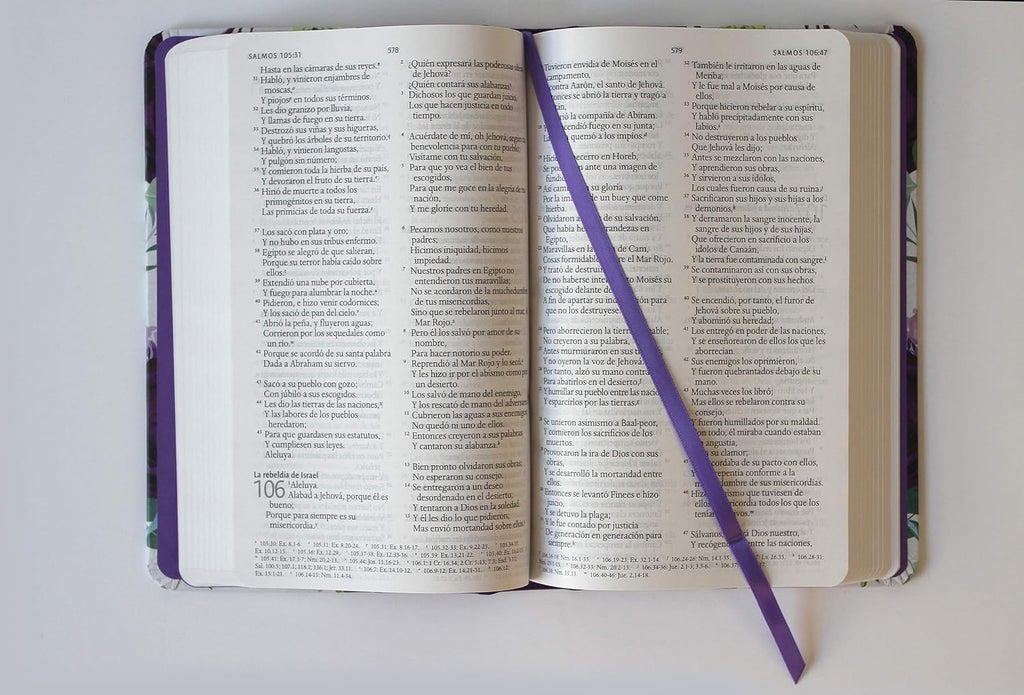 SALMOS 105:31
578
Hasta en las cámaras de sus reyes.
31 Habló, y vinieron enjambres de
moscas,
Y piojos en todos sus términos.
32 Les dio granizo por lluvia,
Y llamas de fuego en su tierra.
33 Destrozó sus viñas y sus higueras,
Y quebró los árboles de su territorio.
34 Habló, y vinieron langostas,
Y pulgón sin número;
35 Y comieron toda la hierba de su país,
Y devoraron el fruto de su tierra.
36 Hirió de muerte a todos los
primogénitos en su tierra,
Las primicias de toda su fuerza.
37 Los sacó con plata y oro;
Y no hubo en sus tribus enfermo.
38 Egipto se alegró de que salieran,
Porque su terror había caído sobre
ellos.
39 Extendió una nube por cubierta,
Y fuego para alumbrar la noche.
40 Pidieron, e hizo venir codornices;
Y los sació de pan del cielo.
41 Abrió la peña, y fluyeron aguas;
Corrieron por los sequedales como
un río.
42 Porque se acordó de su santa palabra
Dada a Abraham su siervo.
43 Sacó a su pueblo con gozo;
Con júbilo a sus escogidos.
44 Les dio las tierras de las naciones,
Y las labores de los pueblos
heredaron;
45 Para que guardasen sus estatutos,
Y cumpliesen sus leyes.
Aleluya.
La rebeldía de Israel
106 1 Aleluya.
Alabad a Jehová, porque él es
bueno;
Porque para siempre es su
misericordia.
2 ¿Quién expresará las poderosas
de Jehová?
¿Quién contará sus alabanzas?
3 Dichosos los que guardan juicio,
Los que hacen justicia en todo
tiempo.
4 Acuérdate de mí, oh Jehová, según
benevolencia para con tu pueblo;
Visítame con tu salvación,
5 Para que yo vea el bien de tus
escogidos,
Para que me goce en la alegría de
nación,
Y me gloríe con tu heredad.
6 Pecamos nosotros, como nuestros
padres;
Hicimos iniquidad, hicimos
impiedad.
7 Nuestros padres en Egipto no
entendieron tus maravillas;
No se acordaron de la muchedumbre
de tus misericordias,
Sino que se rebelaron junto al mar,
Mar Rojo.
8 Pero él los salvó por amor de su
nombre,
Para hacer notorio su poder.
9 Reprendió al Mar Rojo y lo secó,
Y les hizo ir por el abismo como por
un desierto.
10 Los salvó de mano del enemigo,
Y los rescató de mano del adversario.
11 Cubrieron las aguas a sus enemigos;
No quedó ni uno de ellos.
12 Entonces creyeron a sus palabras
Y cantaron su alabanza.
13 Bien pronto olvidaron sus obras;
No esperaron su consejo.
14 Se entregaron a un deseo
desordenado en el desierto;
Y tentaron a Dios en la soledad.
15 Y él les dio lo que pidieron;
Mas envió mortandad sobre ellos.
579
SALMOS 106:47
Tuvieron envidia de Moisés en el
campamento,
contra Aarón, el santo de Jehová.
Entonces se abrió la tierra y tragó a
la compañía de Abiram.
fuego en su junta;
quemó a los impíos.
becerro en Horeb,
ante una imagen de
su gloria
Por la de un buey que come
hierba.
Olvidaron de su salvación,
Que había grandezas en
Egipto,
22 Maravillas en de Cam,
Cosas formidables el Mar Rojo.
Y trató de
De no haberse Moisés su
escogido delante
A fin de apartar su para que
no los destruyese.
Pero aborrecieron la tierra
No creyeron a su palabra,
Antes murmuraron en sus
Y no oyeron la voz de Jehová.
Por tanto, alzó su mano contra
Para abatirlos en el desierto,
Y humillar su pueblo entre las
Y esparcirlos por las tierras.
Se unieron asimismo a Baal-peor,
Y comieron los sacrificios de los
muertos.
Provocaron la ira de Dios con sus
obras,
Y se desarrolló la mortandad entre
ellos.
Entonces se levantó Finees e hizo
juicio,
Y se detuvo la plaga;
Y le fue contado por justicia
De generación en generación para
siempre.
32 También le irritaron en las aguas de
Meriba;
Y le fue mal a Moisés por causa de
ellos,
33 Porque hicieron rebelar a su espíritu,
Y habló precipitadamente con sus
labios.
34 No destruyeron a los pueblos
Que Jehová les dijo;
35 Antes se mezclaron con las naciones,
Y aprendieron sus obras,
36 Y sirvieron a sus ídolos,
Los cuales fueron causa de su ruina.
37 Sacrificaron sus hijos y sus hijas a los
demonios,
38 Y derramaron la sangre inocente, la
sangre de sus hijos y de sus hijas,
Que ofrecieron en sacrificio a los
ídolos de Canaán,
Y la tierra fue contaminada con sangre.
39 Se contaminaron así con sus obras,
Y se prostituyeron con sus hechos.
40 Se encendió, por tanto, el furor de
Jehová sobre su pueblo,
Y abominó su heredad;
41 Los entregó en poder de las naciones,
Y se enseñorearon de ellos los que les
aborrecían.
42 Sus enemigos los oprimieron,
Y fueron quebrantados debajo de su
mano.
43 Muchas veces los libró;
Mas ellos se rebelaron contra su
consejo,
Y fueron humillados por su maldad.
Con todo, él miraba cuando estaban
en angustia,
su clamor;
de su pacto con ellos,
conforme a la
muchedumbre de sus misericordias.
Hizo que tuviesen de
misericordia todos los que los
47 Sálvanos, Dios nuestro,
Y recógenos entre las naciones,